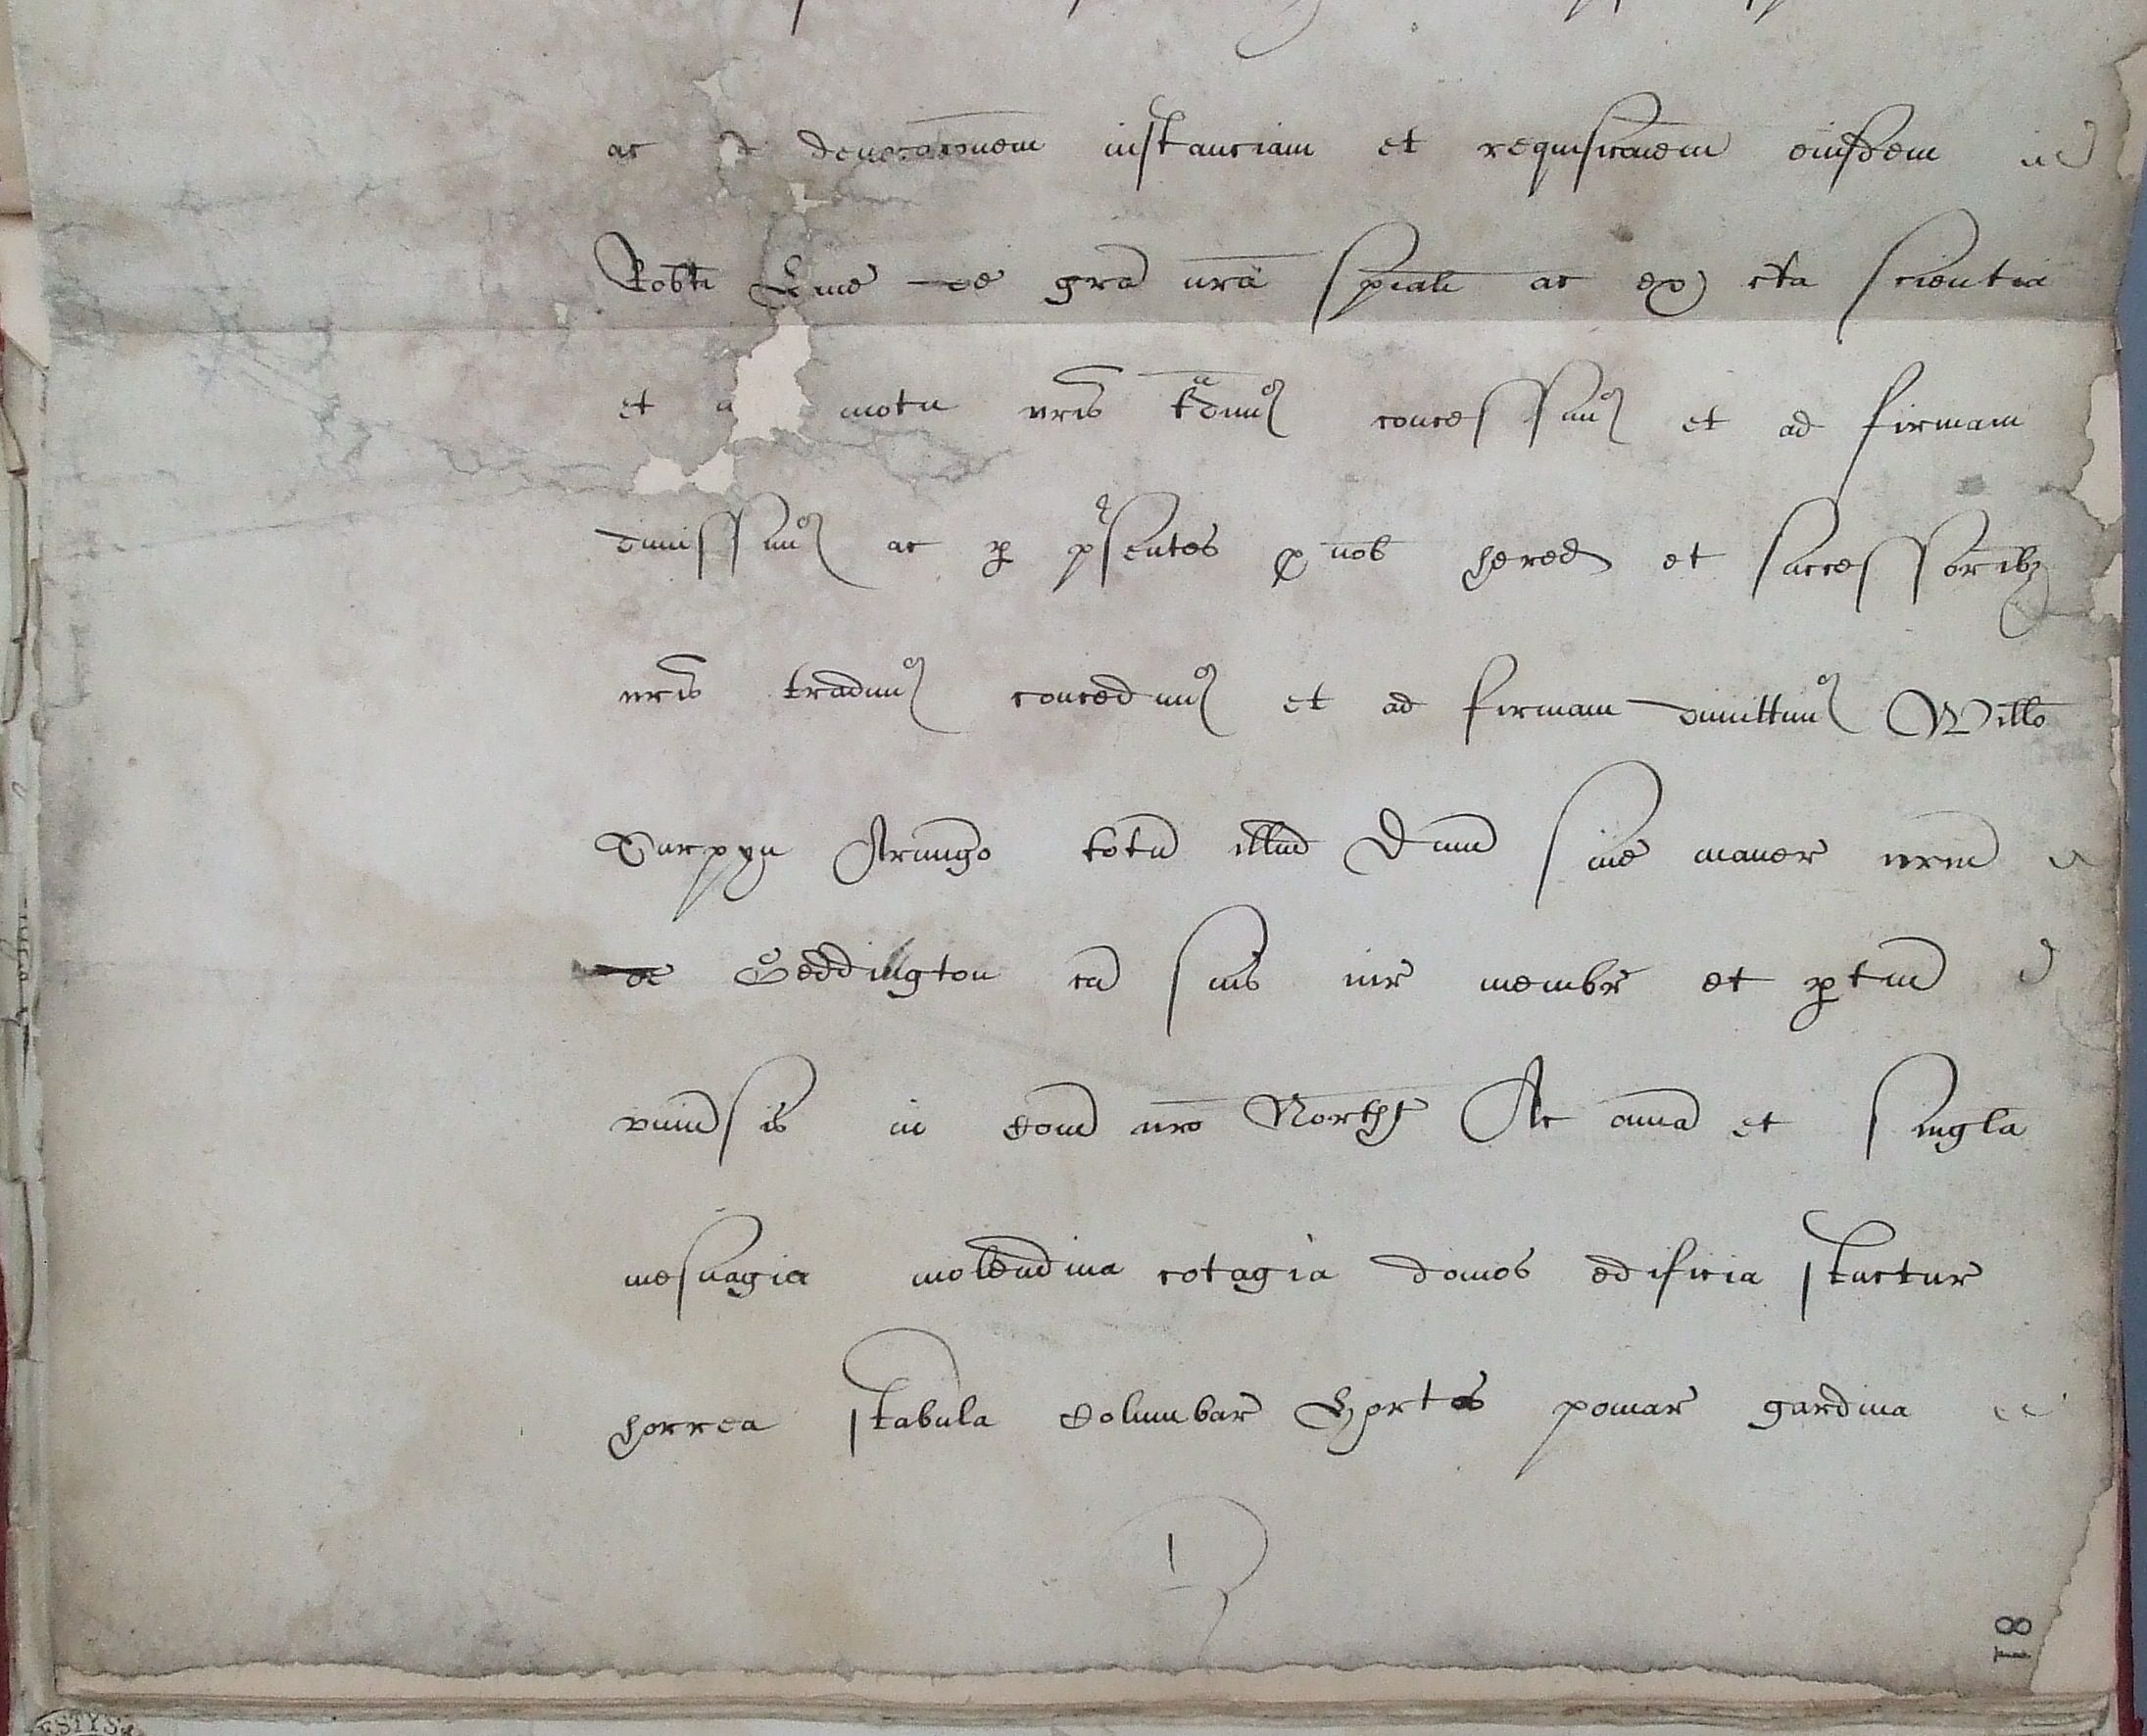 ac denotac̃onem instanciam et requisic̃onem eiusdem
Rob̃ti de gra nr̃a sp̃iali ac ex c̃ta scientia
et motu nr̃is t̃dim⁹ concessim⁹ et ad firmam
dimissim⁹ ac ꝑ p̃sentes ꝓ nob̃ hered et successor̃ibꝫ
nr̃is tradim⁹ concedim⁹ et ad firmam dimittim⁹ Will̃o
Turpyn Armigo totu illud Dnm siue maner nrm
de Geddington cu suis iur membr et ꝑtin
vniusis in Com nr̃o North̃t Ac omia et singla
mesuagia molendina cotagia domos edificia structur
horrea stabula Columbar Hortos pomar gardina
18
ESTYS